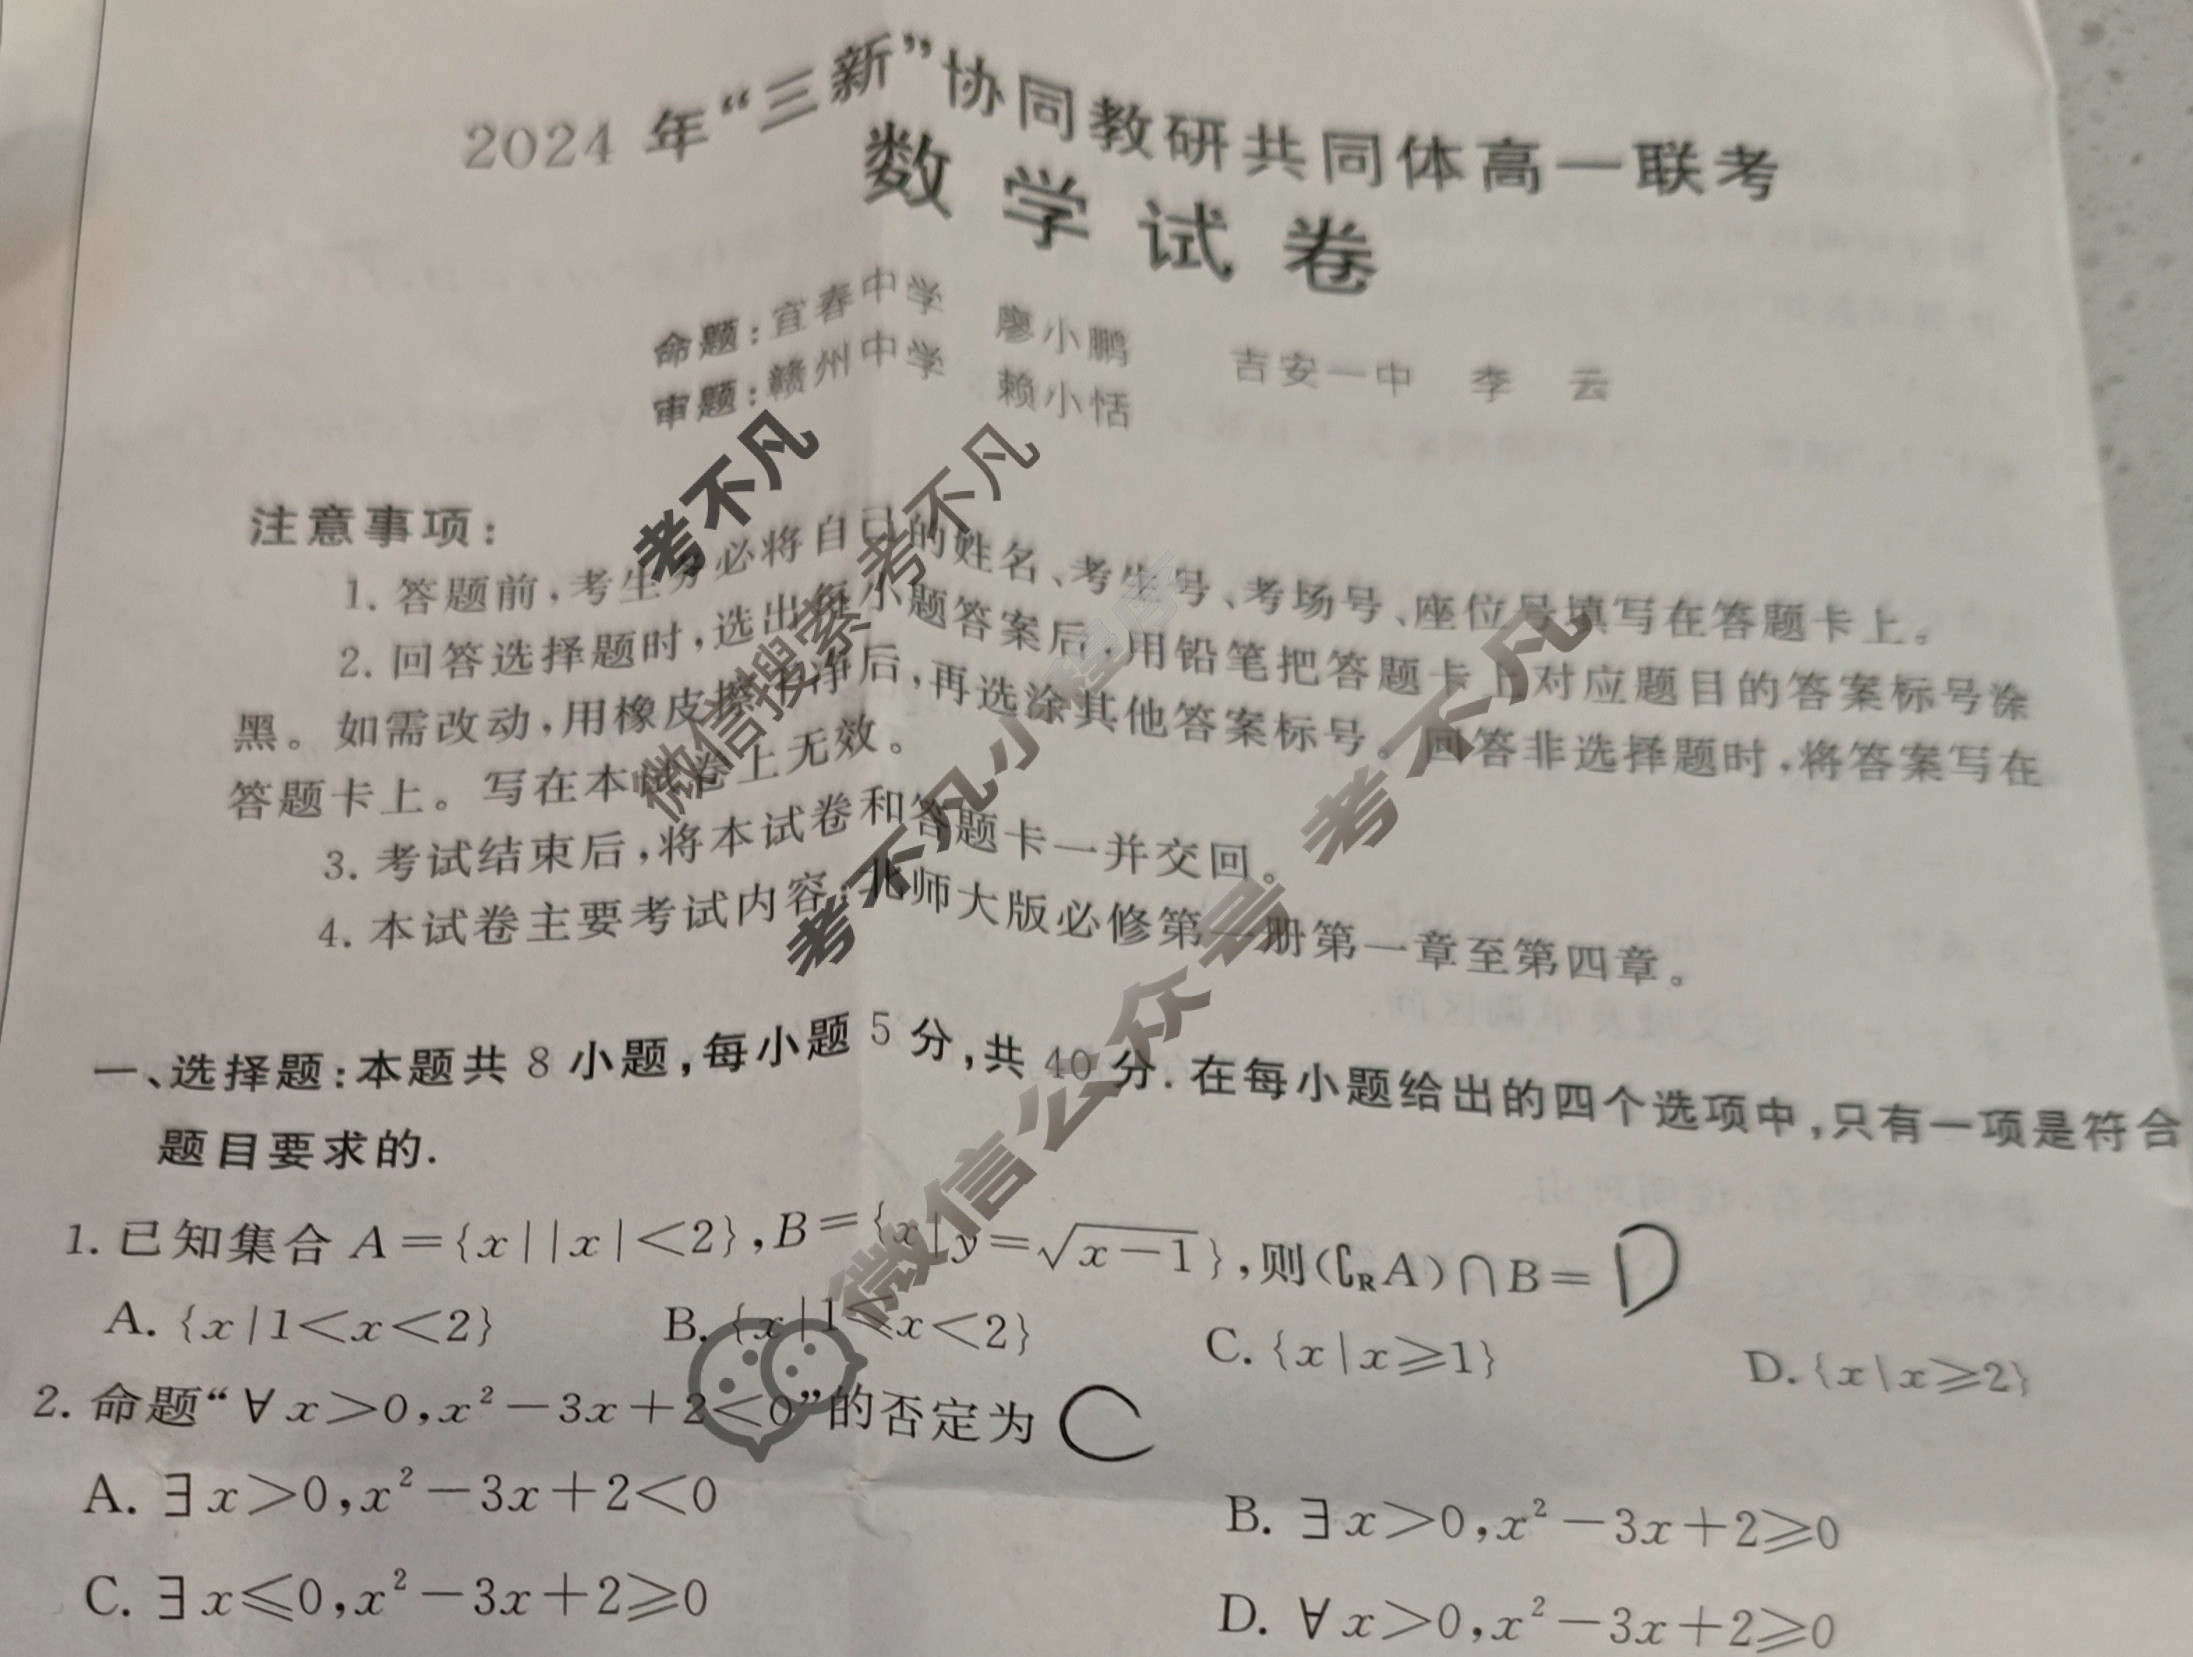 2024 年“三新”协同教研共同体高一联考
数学试卷
命题:宜春中学 廖小鹏 吉安一中 李 云
审题:赣州中学 赖小恬
注意事项:
1. 答题前,考生务必将自己的姓名、考生号、考场号、座位号填写在答题卡上。
2. 回答选择题时,选出每小题答案后,用铅笔把答题卡上对应题目的答案标号涂
黑。如需改动,用橡皮擦干净后,再选涂其他答案标号。回答非选择题时,将答案写在
答题卡上。写在本试卷上无效。
3. 考试结束后,将本试卷和答题卡一并交回。
4. 本试卷主要考试内容:北师大版必修第一册第一章至第四章。
一、选择题:本题共 8 小题,每小题 5 分,共 40 分. 在每小题给出的四个选项中,只有一项是符合
题目要求的.
1. 已知集合 A={x||x|<2},B={x|y=√(x-1)},则(∁RA)∩B= D
A. {x|1<x<2} B. {x|1≤x<2} C. {x|x≥1} D. {x|x≥2}
2. 命题“∀x>0,x²-3x+2<0”的否定为 C
A. ∃x>0,x²-3x+2<0 B. ∃x>0,x²-3x+2≥0
C. ∃x≤0,x²-3x+2≥0 D. ∀x>0,x²-3x+2≥0
考不凡
微信搜索 考不凡
考不凡小程序
微信公众号 考不凡